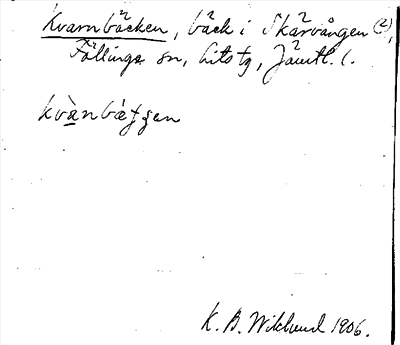 Kvarnbäcken, bäck i Skärvången (2),
Föllinge sn, Lits tg, Jämtl. l.
kvànbæ̀tʃen
K. B. Wiklund 1906.